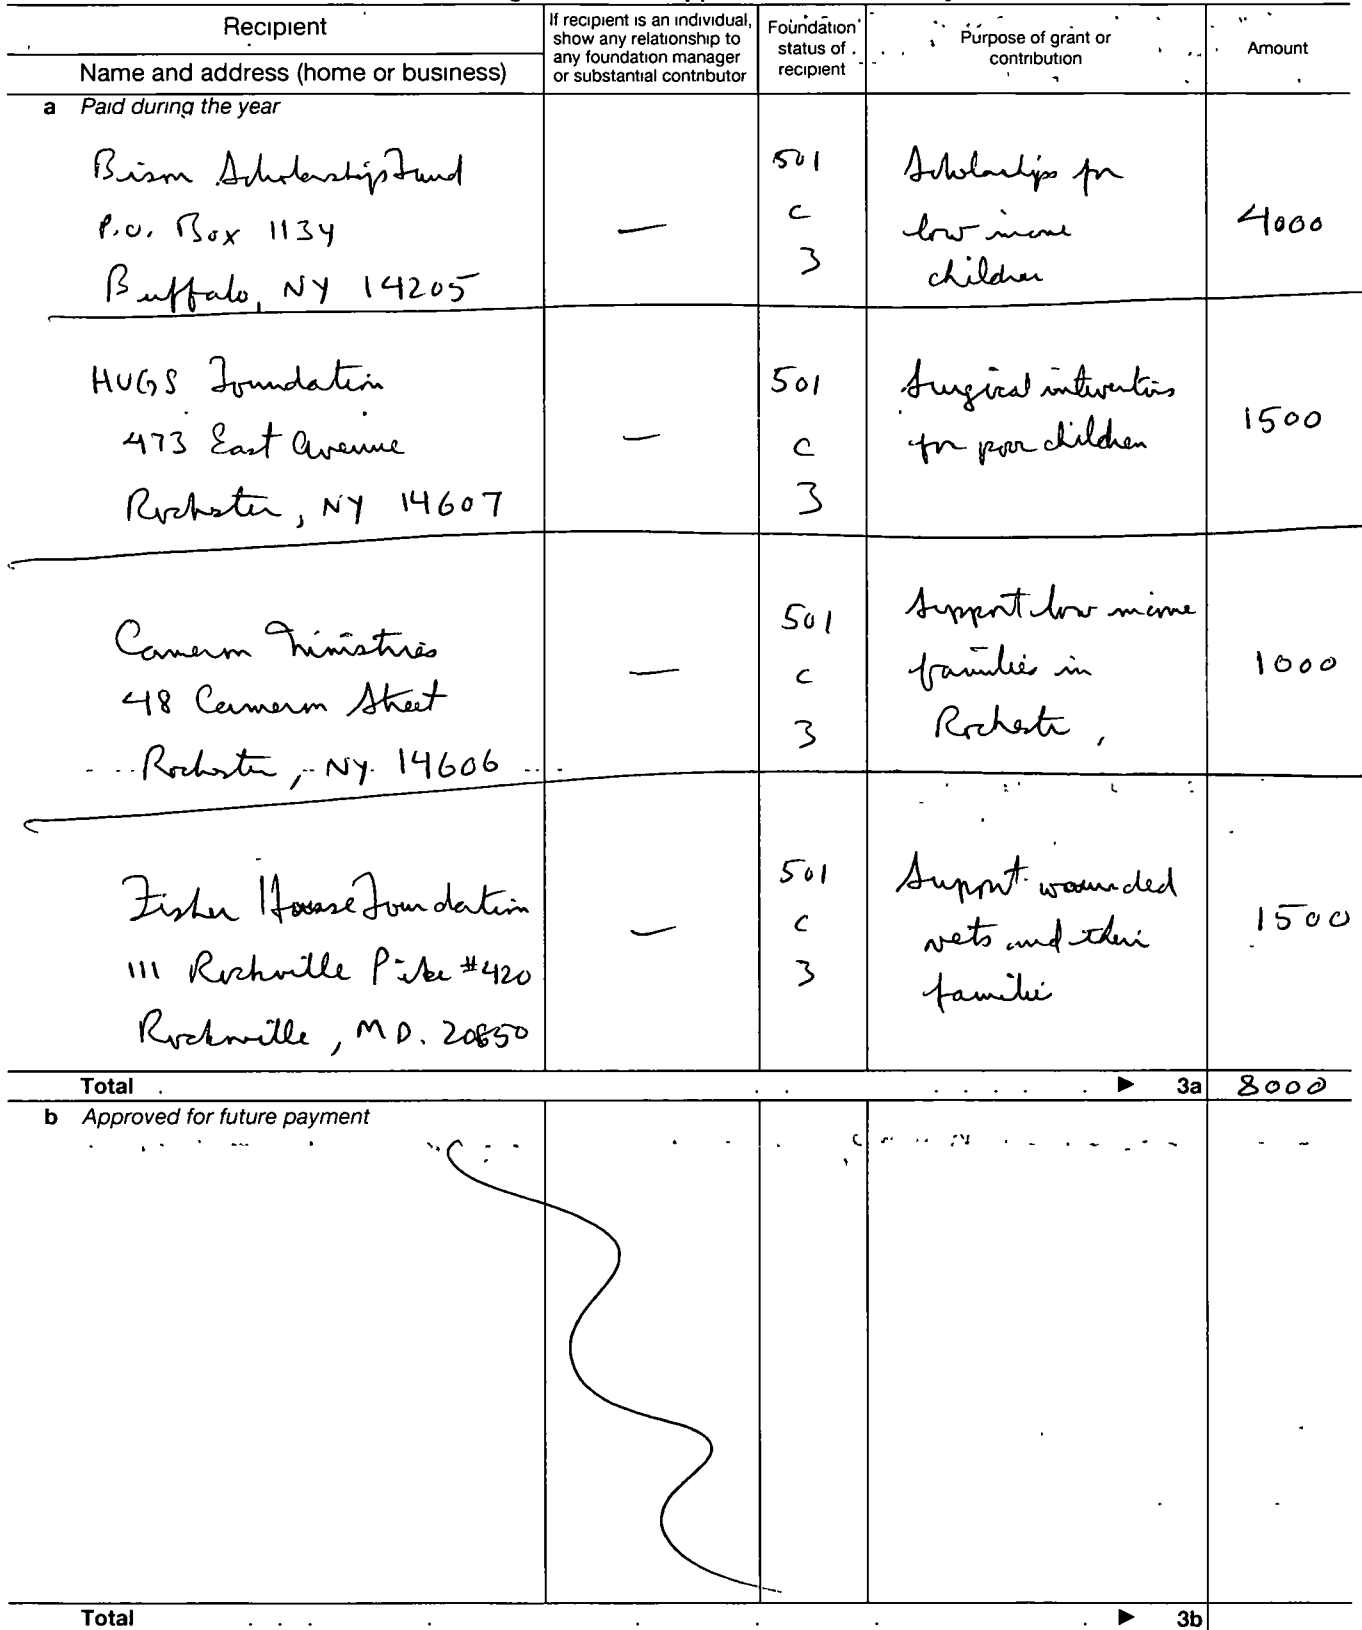 Recipient
If recipient is an individual, show any relationship to any foundation manager or substantial contributor
Foundation status of recipient
Purpose of grant or contribution
Amount
Name and address (home or business)
a Paid during the year
Bison Scholarship Fund
P.O. Box 1134
Buffalo, NY 14205
—
501
C
3
Scholarships for
low income
children
4000
HUGS Foundation
473 East Avenue
Rochester, NY 14607
—
501
C
3
Surgical interventions
for poor children
1500
Cameron Ministries
48 Cameron Street
Rochester, NY 14606
—
501
C
3
Support low income
families in
Rochester,
1000
Fisher House Foundation
111 Rockville Pike #420
Rockville, MD. 20850
—
501
C
3
Support wounded
vets and their
families
1500
Total ▶ 3a 8000
b Approved for future payment
Total ▶ 3b